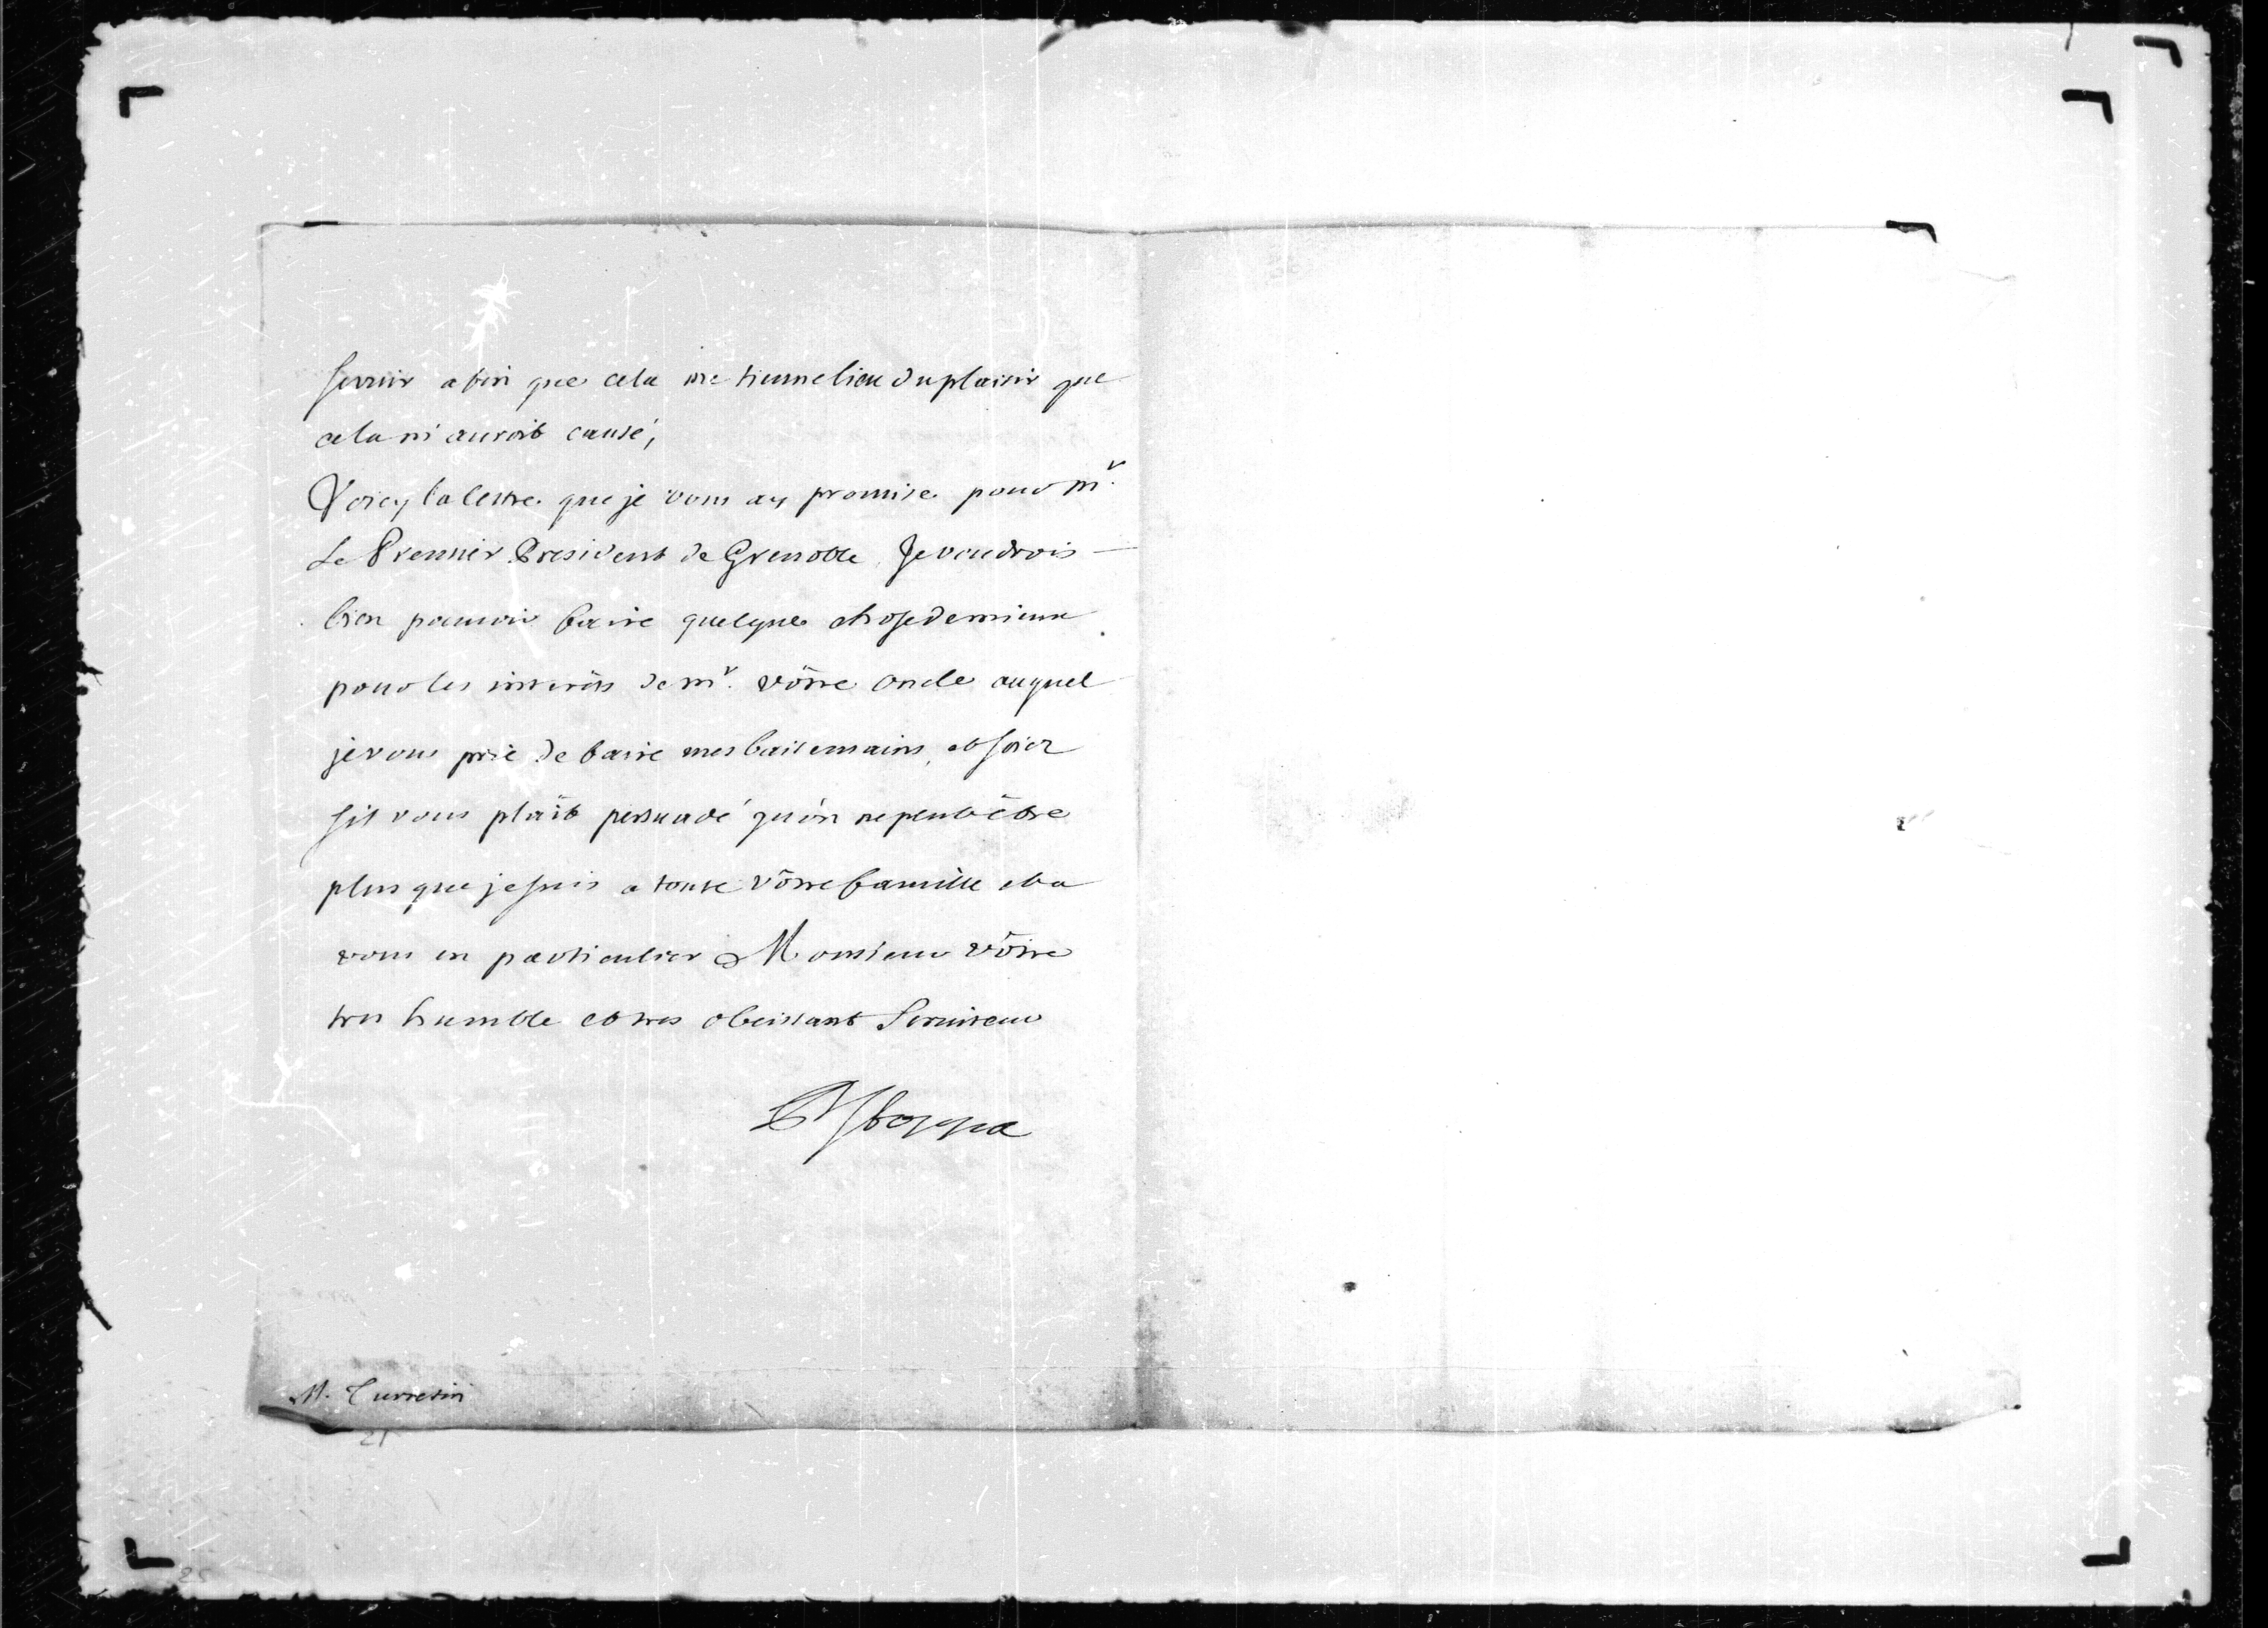 servir afin que cela me tienne lieu du plaisir que
cela m'auroit causé,
Voicy la lettre que je vous ay promise pour Mr.
Le Premier President de Grenoble, Je voudrois
bien pouvoir faire quelque chose de mieux
pour les interêts de Mr. vôtre oncle auquel
je vous prie de faire mes baisemains, et soiez
s'il vous plaît persuadé qu'on ne peut être
plus que je suis a toute vôtre famille et a
vous en particulier Monsieur vôtre
tres humble et tres obeissant Serviteur
Stoppa
M. Turretin
21
25